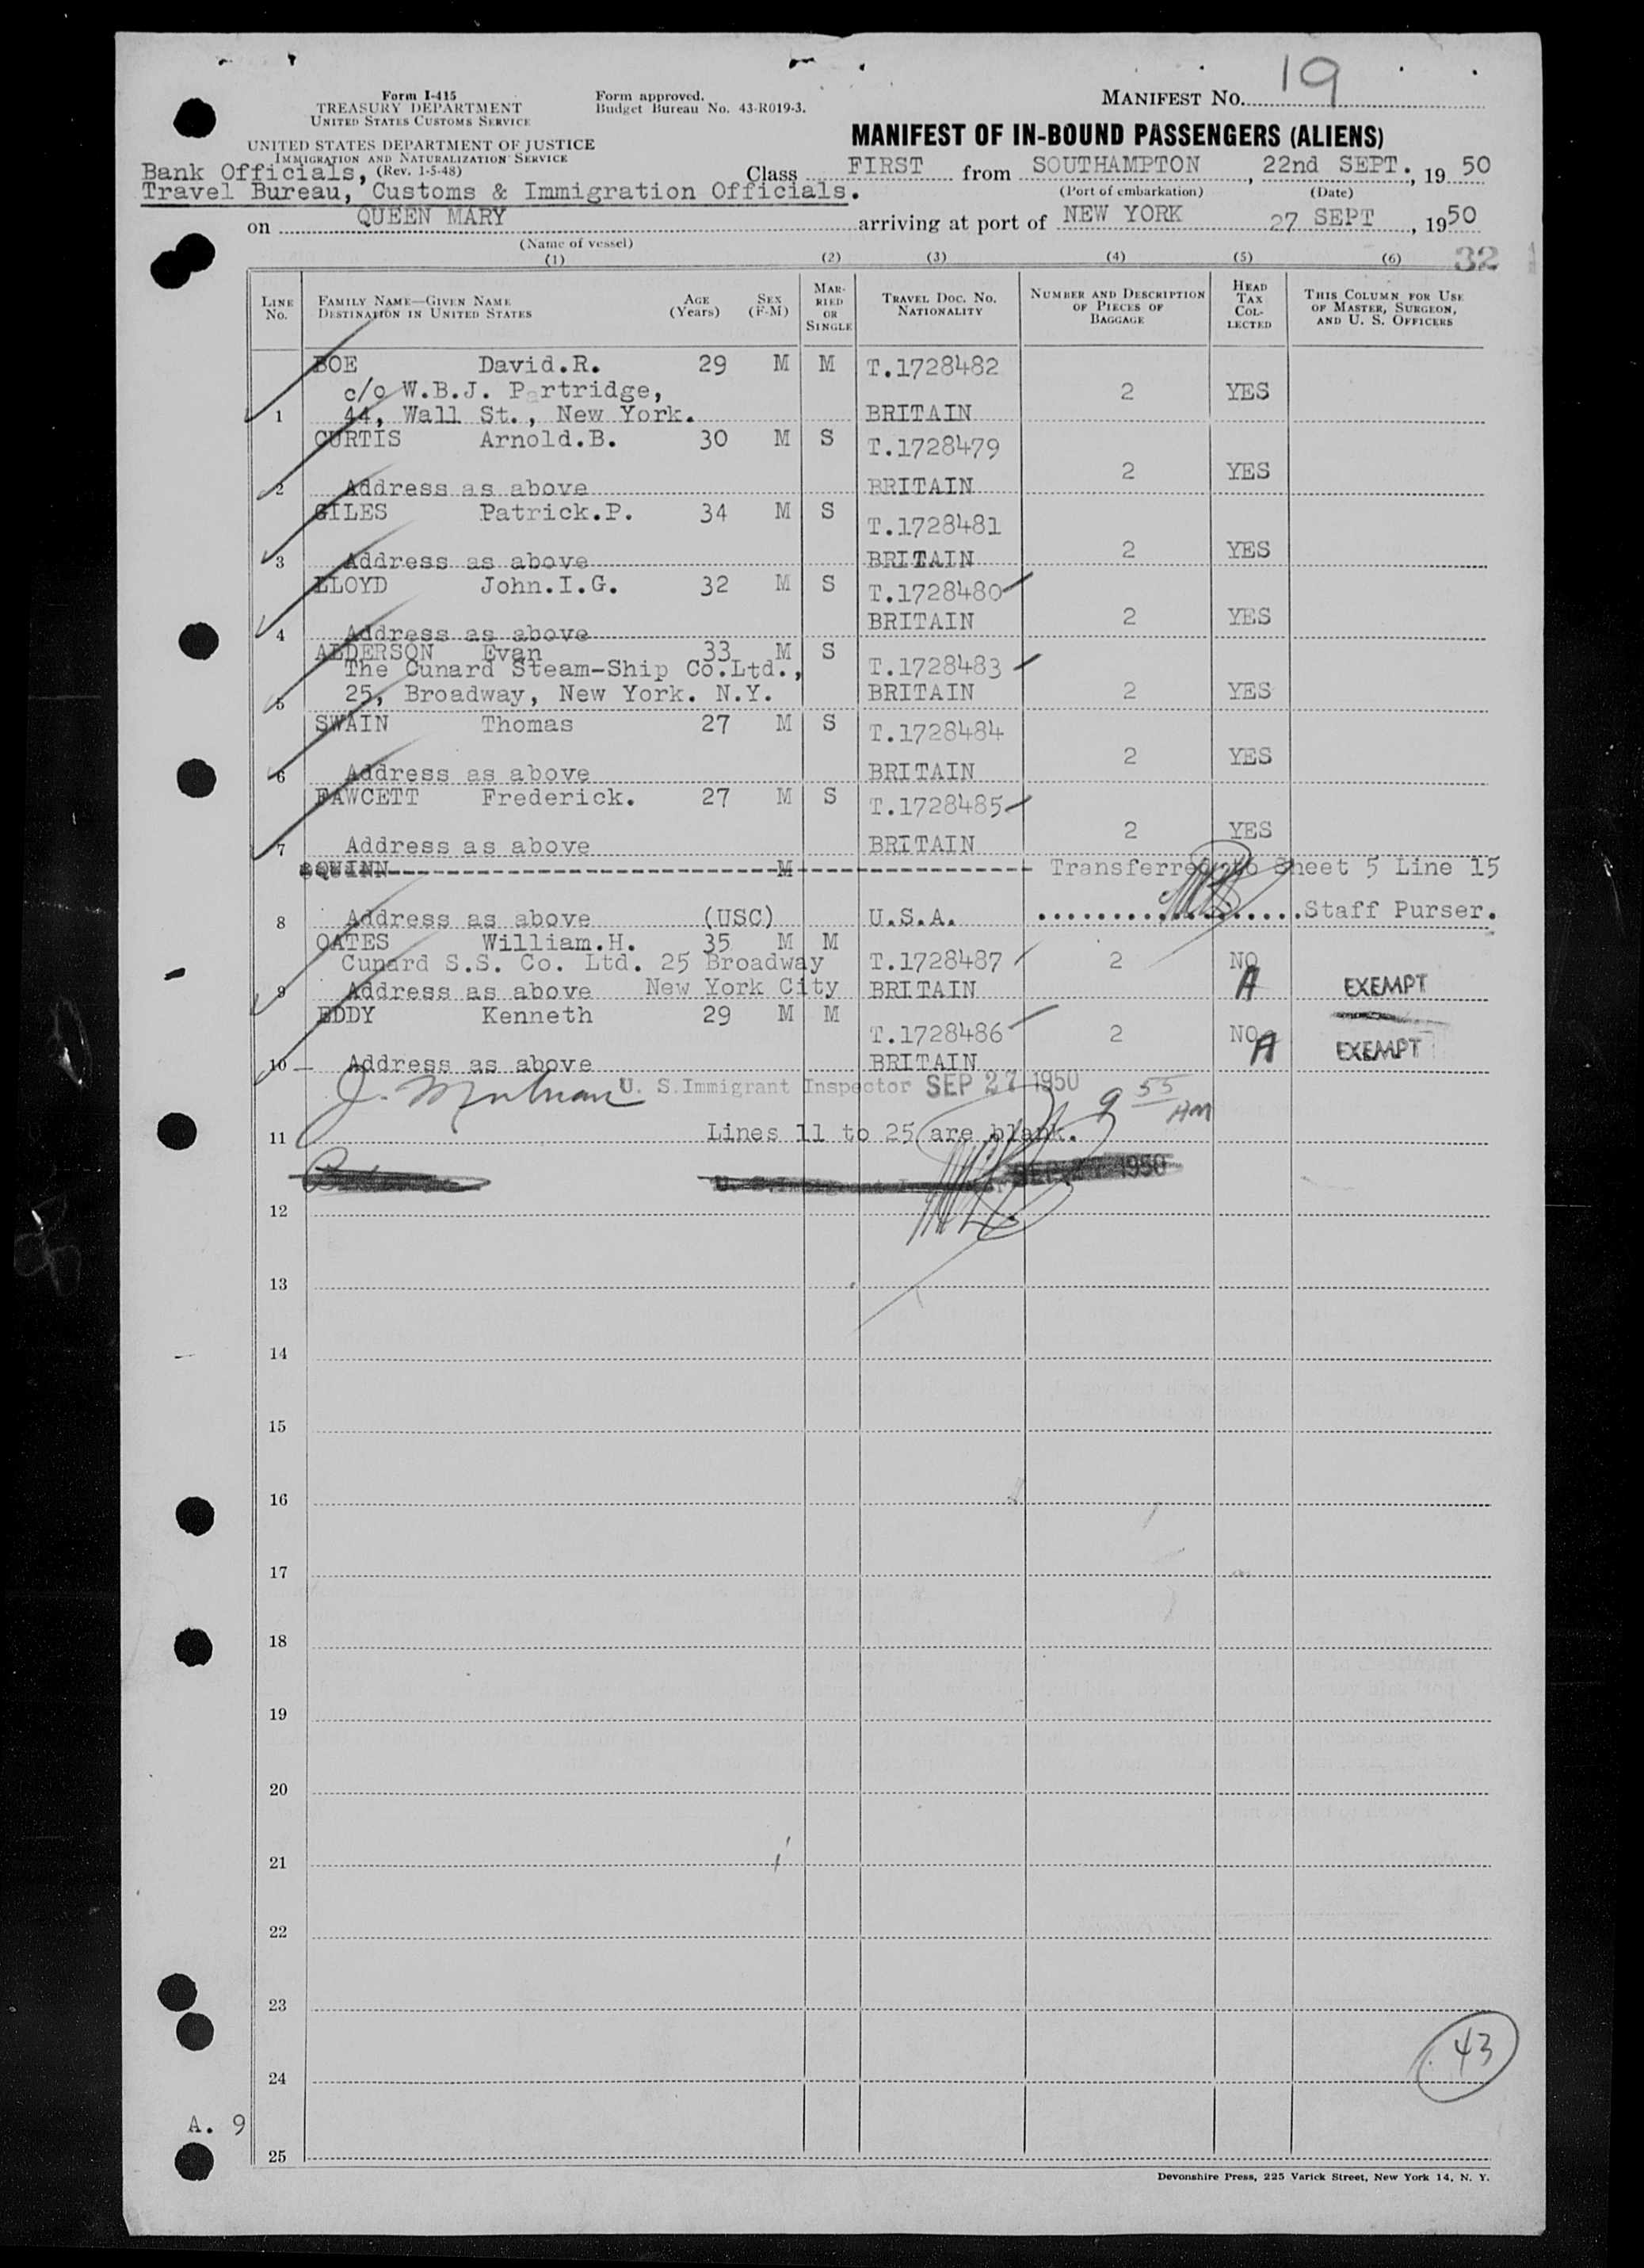 19
Form I-415
TREASURY DEPARTMENT
UNITED STATES CUSTOMS SERVICE
Form approved.
Budget Bureau No. 43-R019-3.
MANIFEST NO.
UNITED STATES DEPARTMENT OF JUSTICE
IMMIGRATION AND NATURALIZATION SERVICE
(Rev. 1-5-48)
MANIFEST OF IN-BOUND PASSENGERS (ALIENS)
Bank Officials,
Travel Bureau, Customs & Immigration Officials.
Class FIRST from SOUTHAMPTON, 22nd SEPT., 19 50
(Port of embarkation) (Date)
on QUEEN MARY arriving at port of NEW YORK 27 SEPT, 1950
(Name of vessel)
(1) (2) (3) (4) (5) (6) 32
LINE No. FAMILY NAME—GIVEN NAME DESTINATION IN UNITED STATES AGE (Years) SEX (F-M) MARRIED OR SINGLE TRAVEL DOC. NO. NATIONALITY NUMBER AND DESCRIPTION OF PIECES OF BAGGAGE HEAD TAX COLLECTED THIS COLUMN FOR USE OF MASTER, SURGEON, AND U. S. OFFICERS
BOE David.R. 29 M M T.1728482
c/o W.B.J. Partridge, 2 YES
1 44, Wall St., New York. BRITAIN
CURTIS Arnold.B. 30 M S T.1728479
2 YES
2 Address as above BRITAIN
GILES Patrick.P. 34 M S T.1728481
2 YES
3 Address as above BRITAIN
LLOYD John.I.G. 32 M S T.1728480
BRITAIN 2 YES
4 Address as above
ALDERSON Evan 33 M S
The Cunard Steam-Ship Co.Ltd., T.1728483
5 25, Broadway, New York. N.Y. BRITAIN 2 YES
SWAIN Thomas 27 M S T.1728484
2 YES
6 Address as above BRITAIN
FAWCETT Frederick. 27 M S T.1728485
2 YES
7 Address as above BRITAIN
QUINN M Transferred to Sheet 5 Line 15
8 Address as above (USC) U.S.A. Staff Purser.
OATES William.H. 35 M M
Cunard S.S. Co. Ltd. 25 Broadway T.1728487 2 NO
9 Address as above New York City BRITAIN A EXEMPT
EDDY Kenneth 29 M M
T.1728486 2 NO A EXEMPT
10 Address as above BRITAIN
U. S. Immigrant Inspector SEP 27 1950 9 55 AM
11 Lines 11 to 25 are blank.
1950
12
13
14
15
16
17
18
19
20
21
22
23
43
24
A. 9
25
Devonshire Press, 225 Varick Street, New York 14, N. Y.